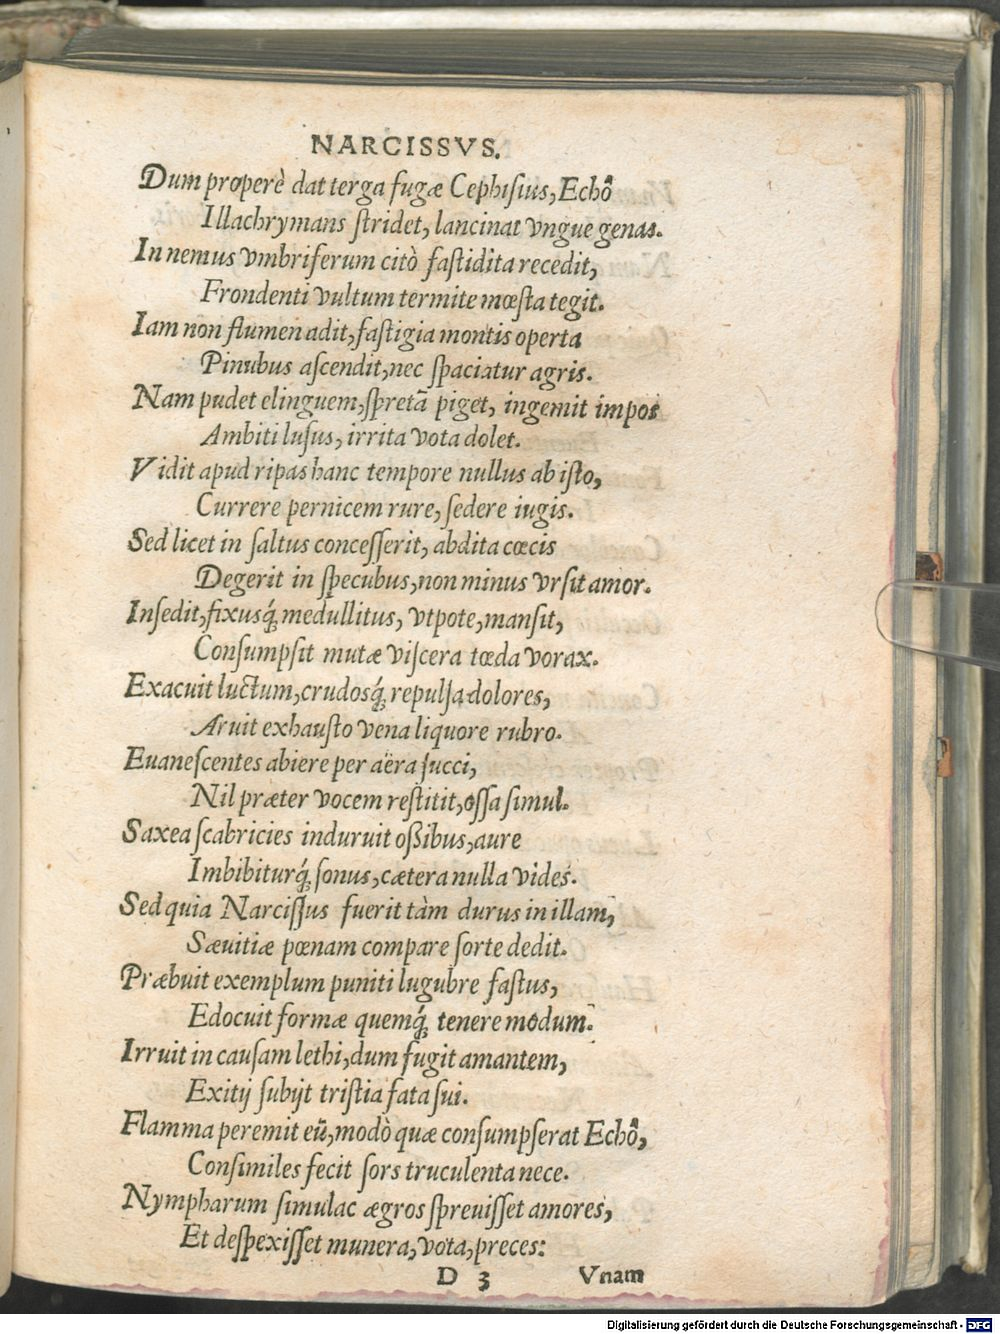 NARCISSVS.
Dum properè dat terga fugæ Cephisius, Echô
Illachrymans stridet, lancinat vngue genas.
In nemus vmbriferum citò fastidita recedit,
Frondenti vultum termite mœsta tegit.
Iam non flumen adit, fastigia montis operta
Pinubus ascendit, nec spaciatur agris.
Nam pudet elinguem, spretã piget, ingemit impos
Ambiti lusus, irrita vota dolet.
Vidit apud ripas hanc tempore nullus ab isto,
Currere pernicem rure, sedere iugis.
Sed licet in saltus concesserit, abdita cœcis
Degerit in specubus, non minus vrsit amor.
Insedit, fixusq́; medullitus, vtpote, mansit,
Consumpsit mutæ viscera tœda vorax.
Exacuit luctum, crudosq́; repulsa dolores,
Aruit exhausto vena liquore rubro.
Euanescentes abiere per aëra succi,
Nil præter vocem restitit, ossa simul.
Saxea scabricies induruit oßibus, aure
Imbibiturq́; sonus, cætera nulla vides.
Sed quia Narcissus fuerit tàm durus in illam,
Sæuitiæ pœnam compare sorte dedit.
Præbuit exemplum puniti lugubre fastus,
Edocuit formæ quemq́; tenere modum.
Irruit in causam lethi, dum fugit amantem,
Exitij subijt tristia fata sui.
Flamma peremit eũ, modò quæ consumpserat Echô,
Consimiles fecit sors truculenta nece.
Nympharum simulac ægros spreuisset amores,
Et despexisset munera, vota, preces:
D 3 Vnam
Digitalisierung gefördert durch die Deutsche Forschungsgemeinschaft - DFG